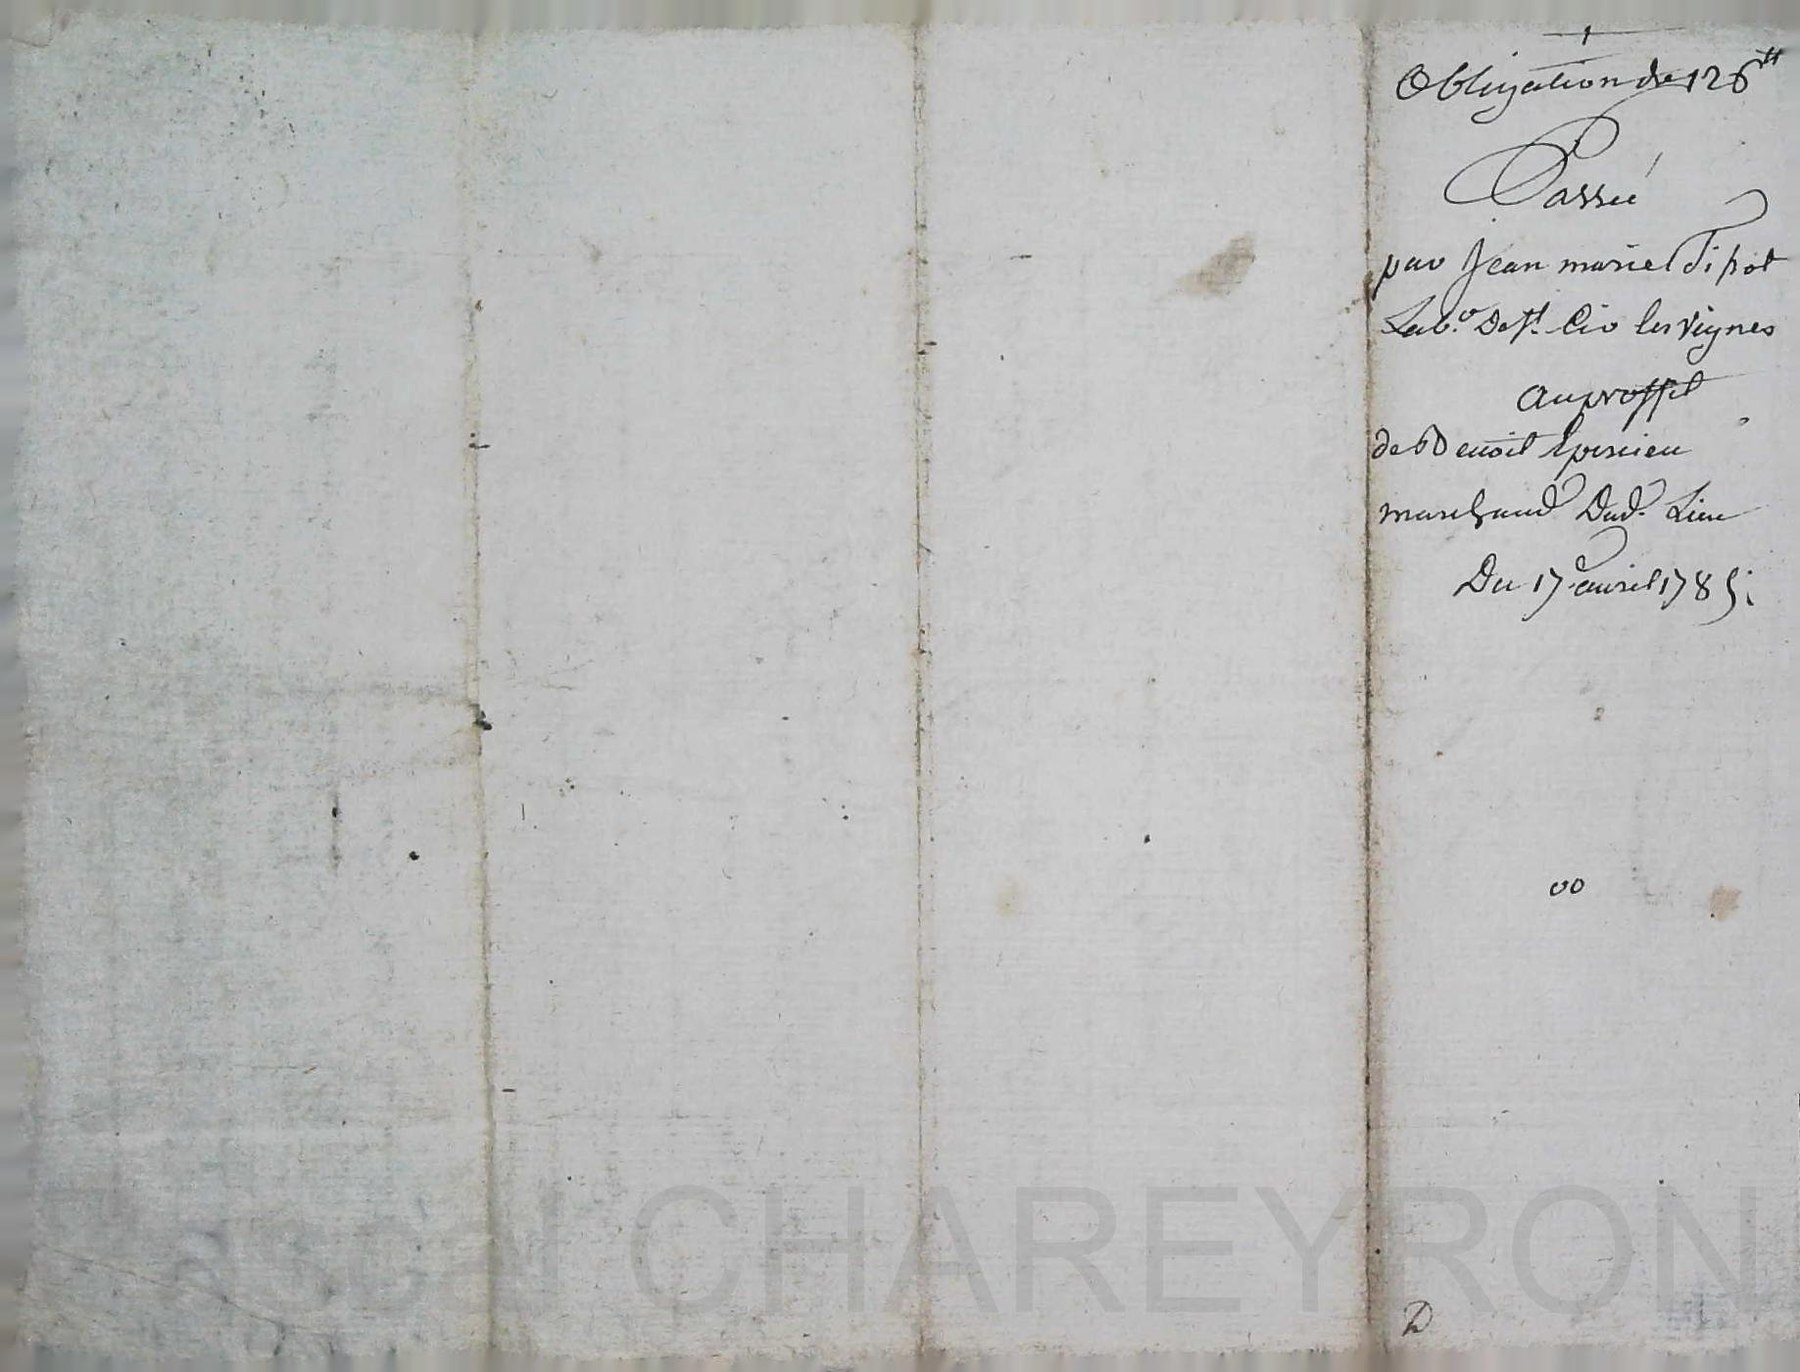 Obligation de 126tt
Passée
par Jean marie Tipot
Labr. De St. Cir les vignes
au proffit
de Benoit Epercieu
marchand Dud. Lieu
Du 17 avril 1785
00
D
Pascal CHAREYRON